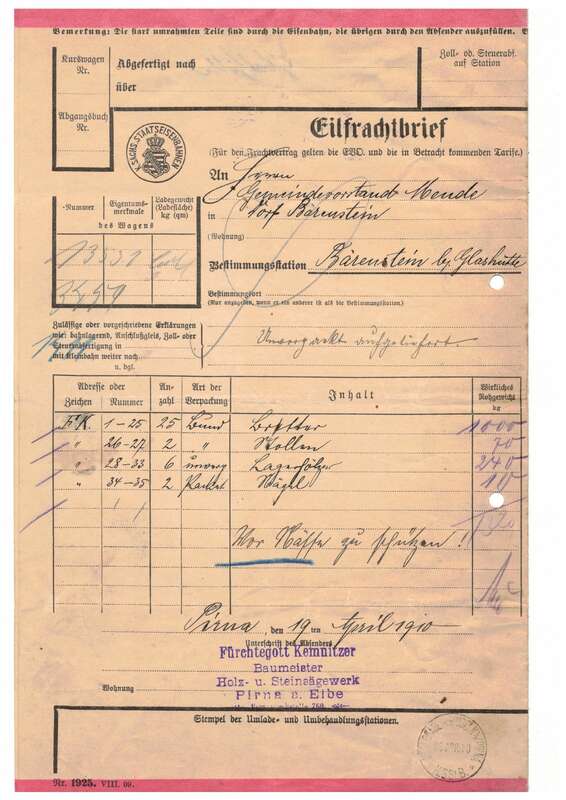 Bemerkung: Die stark umrahmten Teile sind durch die Eisenbahn, die übrigen durch den Absender auszufüllen.
Kurswagen
Nr.
Abgefertigt nach
über
Zoll- od. Steuerabf.
auf Station
Abgangsbuch
Nr.
K.SÄCHS. STAATSEISENBAHNEN
Eilfrachtbrief
(Für den Frachtvertrag gelten die EVO. und die in Betracht kommenden Tarife.)
An Herrn
Gemeindevorstand Mende
in Dorf Bärenstein
(Wohnung)
Bestimmungsstation Bärenstein b. Glashütte
-Nummer
Eigentums-
merkmale
Ladegewicht
(Ladefläche)
kg (qm)
des Wagens
Bestimmungsort
(Nur anzugeben, wenn er ein anderer ist als die Bestimmungsstation.)
Zulässige oder vorgeschriebene Erklärungen
wie: bahnlagernd, Anschlußgleis, Zoll- oder
Steuerabfertigung in
mit Eisenbahn weiter nach
u. dgl.
Unverpackt aufgeliefert.
Adresse oder
Zeichen Nummer
An-
zahl
Art der
Verpackung
Inhalt
Wirkliches
Rohgewicht
kg
F.K. 1-25 25 Bund Bretter 1000
" 26-27 2 " Stollen 70
" 28-33 6 unverp Lagerhölzer 240
" 34-35 2 Packet Nägel 10
Vor Nässe zu schützen!
Pirna, den 19ten April 1910
Unterschrift des Absenders
Fürchtegott Kemnitzer
Baumeister
Holz- u. Steinsägewerk
Pirna a. Elbe
Wohnung
Stempel der Umlade- und Umbehandlungsstationen.
Nr. 1925. VIII. 09.